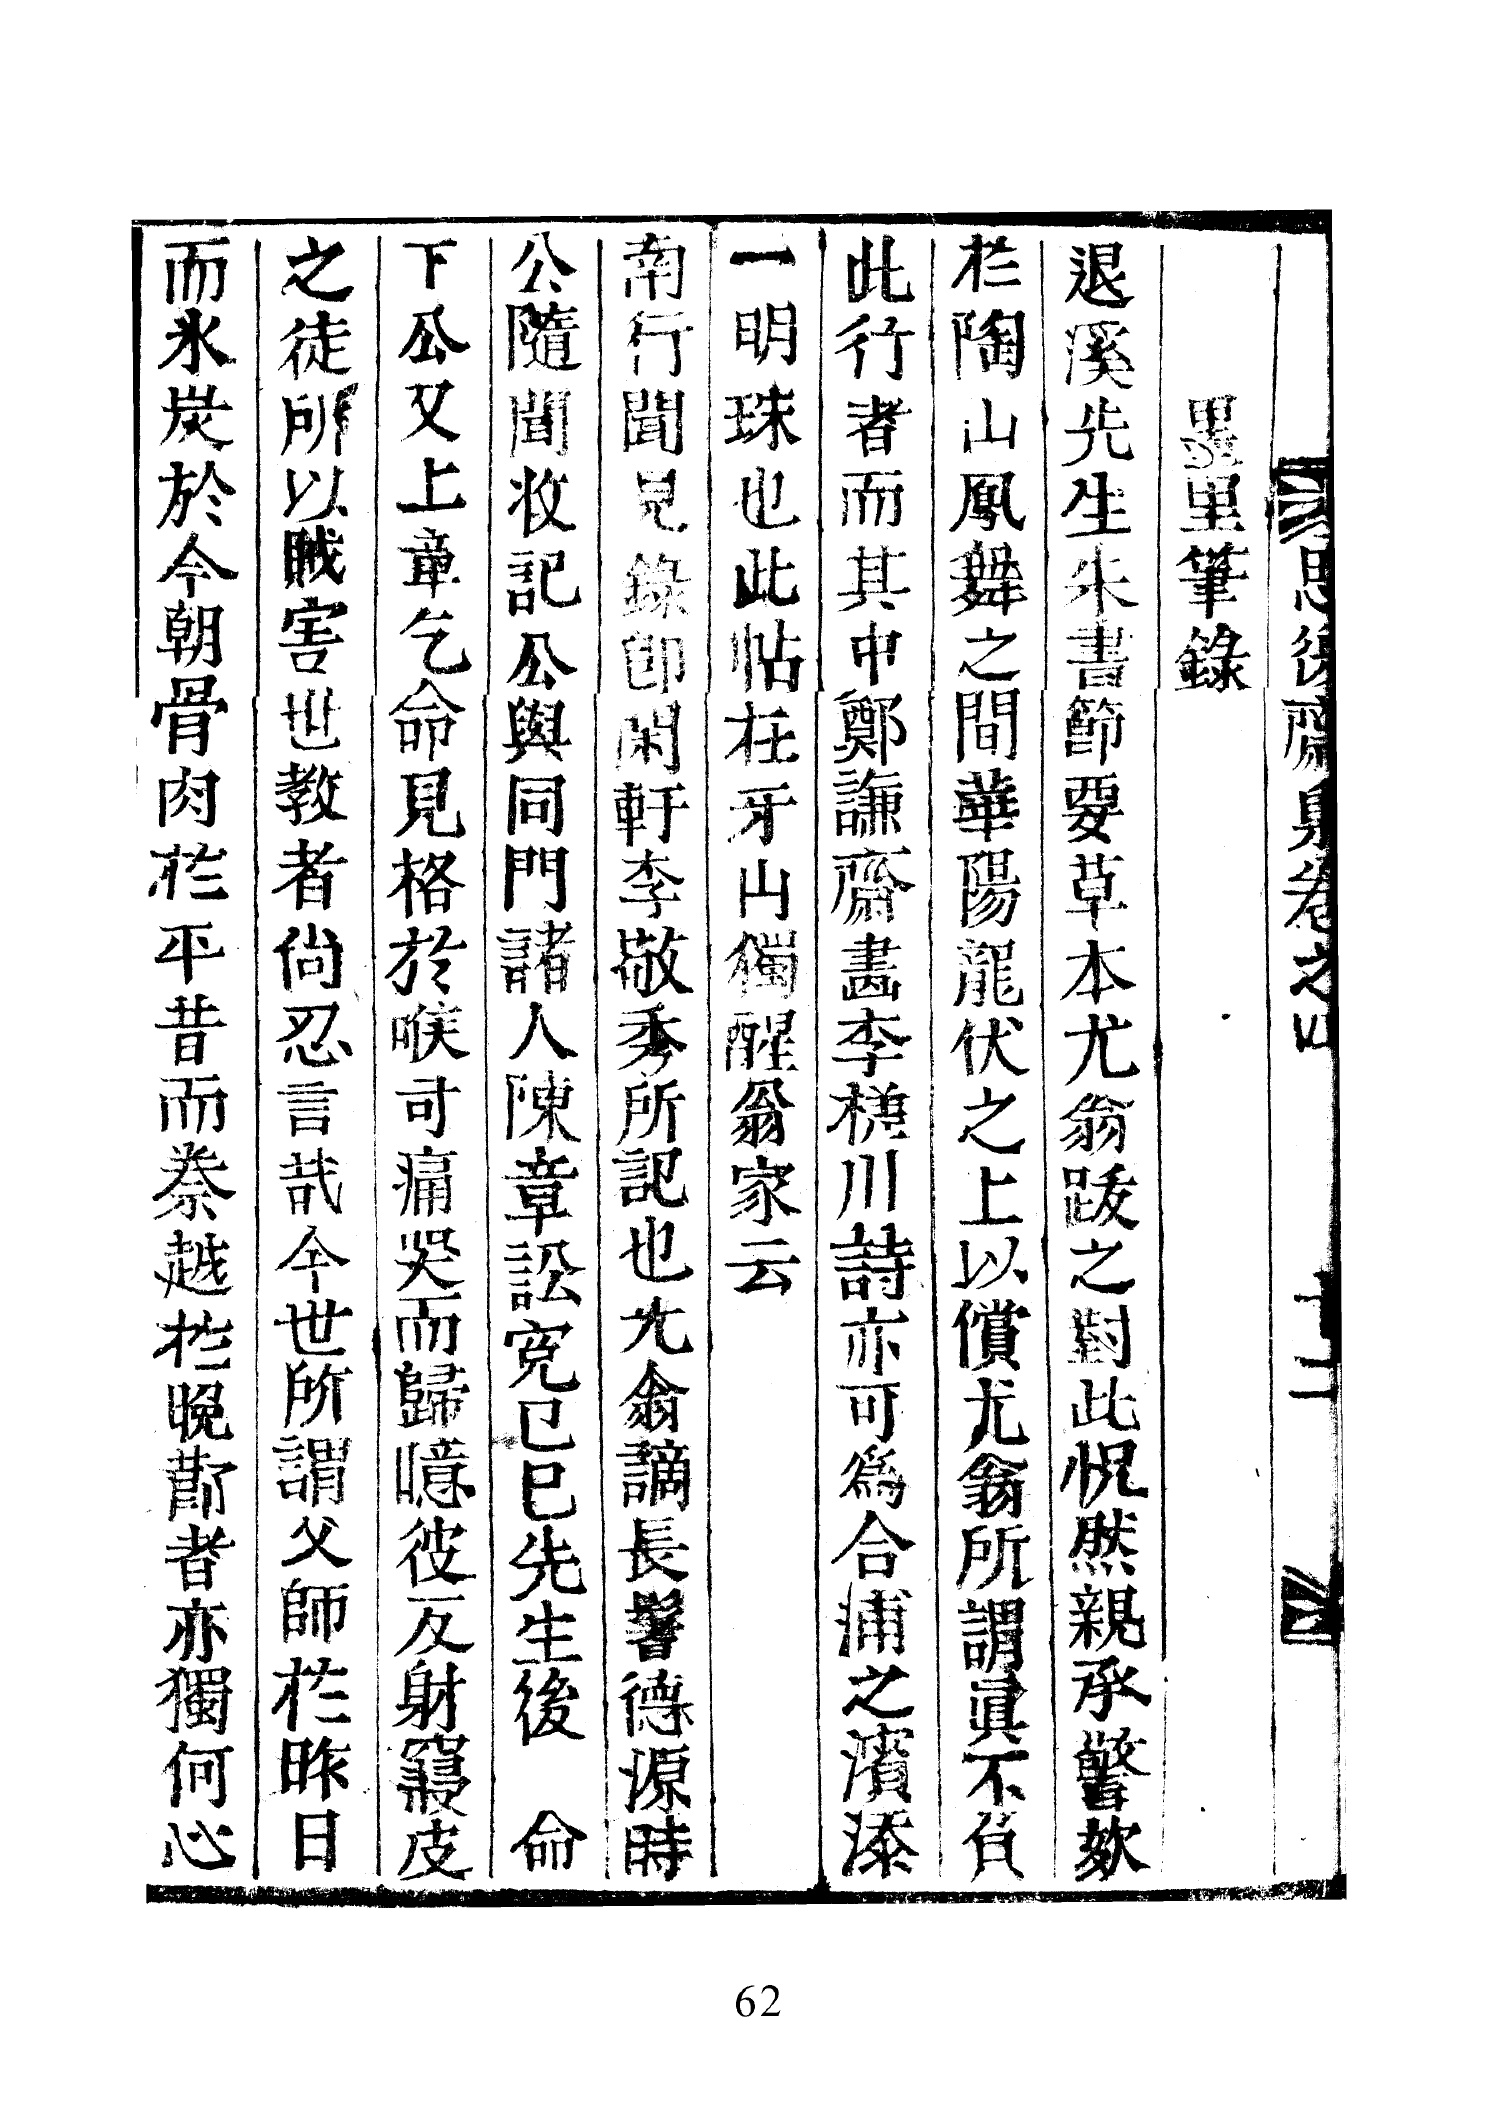 思後齋集卷之四
十二
墨里筆錄
退溪先生朱書節要草本尤翁跋之對此怳然親承謦欬
於陶山鳳舞之間華陽龍伏之上以償尤翁所謂眞不負
此行者而其中鄭謙齋畵李槎川詩亦可爲合浦之濱添
一明珠也此帖在牙山獨醒翁家云
南行聞見錄卽閑軒李敬秀所記也尤翁謫長鬐德源時
公隨聞收記公與同門諸人陳章訟寃己巳先生後 命
下公又上章乞命見格於喉司痛哭而歸噫彼反射寢皮
之徒所以賊害世教者尙忍言哉今世所謂父師於昨日
而氷炭於今朝骨肉於平昔而秦越於晩節者亦獨何心
62